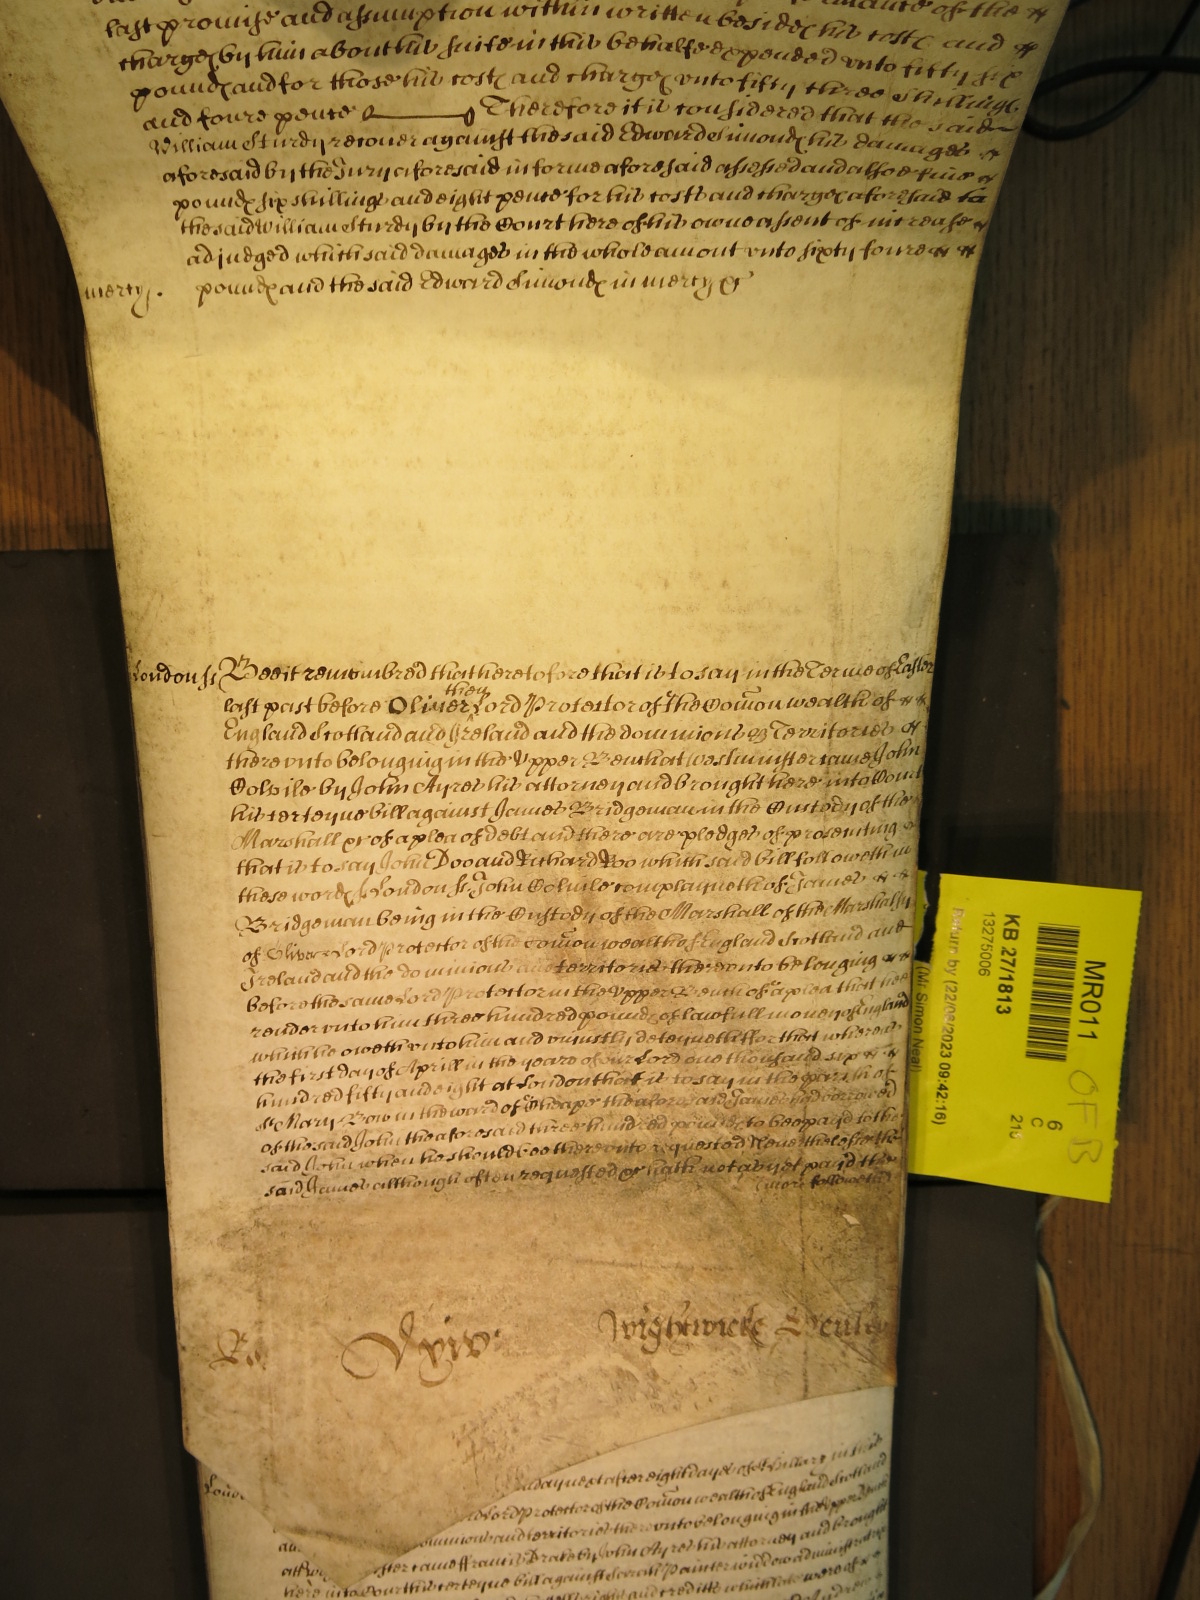 last promise and assumption within written besides his costs and
charges by him about his suite in this behalfe expended unto fifty six
pounds and for those his costs and charges unto fifty three shillings
and foure pence Therefore it is considered that the said
William Sturdy recover against the said Edward Simonds his damages
aforesaid by the Jury aforesaid in forme aforesaid assessed and alsoe five
pounds six shillings and eight pence for his costs and charges aforesaid to
the said William Sturdy by the Court here of his owne assent of increase
adjudged which said damages in the whole amount unto sixty foure
mercy. pounds and the said Edward Simonds in mercy &c
London ss Bee it remembred that heretofore that is to say in the Terme of Easter
last past before Oliver then Lord Protector of the Com̃on wealth of
England Scotland and Ireland and the dominions & Territories
thereunto belonging in the Upper Bench at Westminster came John
Colvile by John Ayres his attorney and brought here into Court
his certeyne bill against James Bridgeman in the Custody of the
Marshall &c of a plea of debt and there are pledges of prosecuting
that is to say John Doo and Richard Roo which said bill followeth in
these words London ss John Colvile complayneth of James
Bridgeman being in the Custody of the Marshall of the Marshalsey
of Oliver Lord Protector of the Com̃on wealth of England Scotland and
Ireland and the dominions and territories thereunto belonging
before the same Lord Protector in the Upper Bench of a plea that hee
render unto him three hundred pounds of lawfull money of England
which he oweth unto him and unjustly deteyneth for that whereas
the first day of Aprill in the yeare of our Lord one thousand six
hundred fifty and eight at London that is to say in the parish of
St Mary Bow in the ward of Cheape the aforesaid James had borrowed
of the said John the aforesaid three hundred pounds to be payd to the
said John when he should bee thereunto requested Neverthelesse the
said James although often requested &c hath not as yet payd the
(more followeth
Ro. xiv Wightwicke
Lond
day next after eight dayes of St Hillary in
Lord Protector of the Com̃on wealth of England Scotland
dominions and territories thereunto belonging in the Upper Bench
came Francis Drake by John Ayres his attorney and brought
here into Court his certeyne bill against Sarah Painter widdow administratrix
and creditts which were of
MR011
KB 27/1813
13275006
Return by (22/08/2023 09:42:16)
(Mr Simon Neal)
6
C
219
OFB